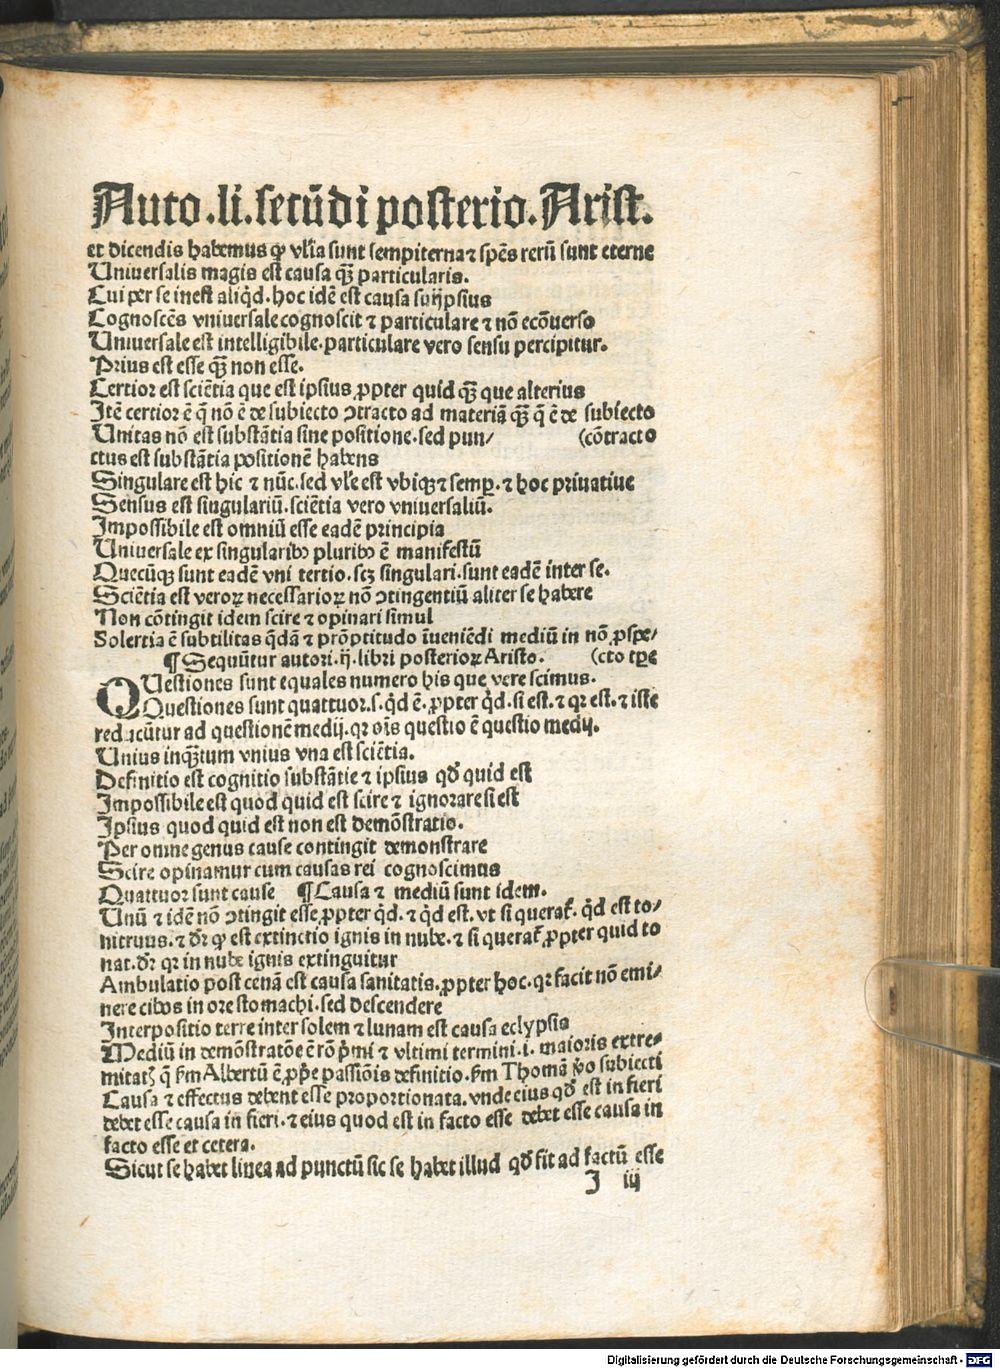 Auto.li.secūdi posterio.Arist.
et dicendis habemus ꝙ vl̄ia sunt sempiterna ⁊ spēs rerū sunt eterne
Uniuersalis magis est causa qᷓꝫ particularis.
Cui per se inest aliq̄d. hoc idē est causa suijpsius
Cognoscēs vniuersale cognoscit ⁊ particulare ⁊ nō ecōuerso
Uniuersale est intelligibile.particulare vero sensu percipitur.
Prius est esse qᷓꝫ non esse.
Certior est sciētia que est ipsius ꝓpter quid qᷓꝫ que alterius
Itē certior ē q̄ nō ē de subiecto ↄtracto ad materiā qᷓꝫ q̄ ē de subiecto
Unitas nō est substātia sine positione.sed pun/ (cōtracto
ctus est substātia positionē habens
Singulare est hic ⁊ nūc.sed vl̄e est vbiqꝫ ⁊ semꝑ.⁊ hoc priuatiue
Sensus est singulariū.sciētia vero vniuersaliū.
Impossibile est omniū esse eadē principia
Uniuersale ex singularibꝰ pluribꝰ ē manifestū
Quecūqꝫ sunt eadē vni tertio.scꝫ singulari.sunt eadē inter se.
Sciētia est veroꝝ necessarioꝝ nō ↄtingentiū aliter se habere
Non cōtingit idem scire ⁊ opinari simul
Solertia ē subtilitas q̄dā ⁊ prōptitudo īueniēdi mediū in nō ꝓspe/
¶ Sequūtur autori.ij.libri posterioꝝ Aristo. (cto tꝑe
QUestiones sunt equales numero his que vere scimus.
Questiones sunt quattuor.s.q̄d ē.ꝓpter q̄d.si est.⁊ qꝛ est.⁊ iste
reducūtur ad questionē medij.qꝛ oīs questio ē questio medij.
Unius inqᷓꝫtum vnius vna est sciētia.
Definitio est cognitio substātie ⁊ ipsius qđ quid est
Impossibile est quod quid est scire ⁊ ignorare si est
Ipsius quod quid est non est demōstratio.
Per omne genus cause contingit demonstrare
Scire opinamur cum causas rei cognoscimus
Quattuor sunt cause ¶ Causa ⁊ mediū sunt idem.
Unū ⁊ idē nō ↄtingit esse ꝓpter q̄d.⁊ q̄d est.vt si querat᷑ q̄d est to/
nitruus.⁊ dr̄ ꝙ est extinctio ignis in nube.⁊ si querat᷑ ꝓpter quid to
nat.dr̄ qꝛ in nube ignis extinguitur
Ambulatio post cenā est causa sanitatis.ꝓpter hoc.qꝛ facit nō emi/
nere cibos in ore stomachi.sed descendere
Interpositio terre inter solem ⁊ lunam est causa eclypsis
Mediū in demōstratōe ē rō p̄mi ⁊ vltimi termini.i.maioris extre/
mitatꝭ q̄ ẜm Albertū ē ꝓpr̄e passiōis definitio.ẜm Thomā v̄o subiecti
Causa ⁊ effectus debent esse proportionata.vnde eius qđ est in fieri
debet esse causa in fieri.⁊ eius quod est in facto esse debet esse causa in
facto esse et cetera.
Sicut se habet linea ad punctū sic se habet illud qđ fit ad factū esse
I iij
Digitalisierung gefördert durch die Deutsche Forschungsgemeinschaft - DFG